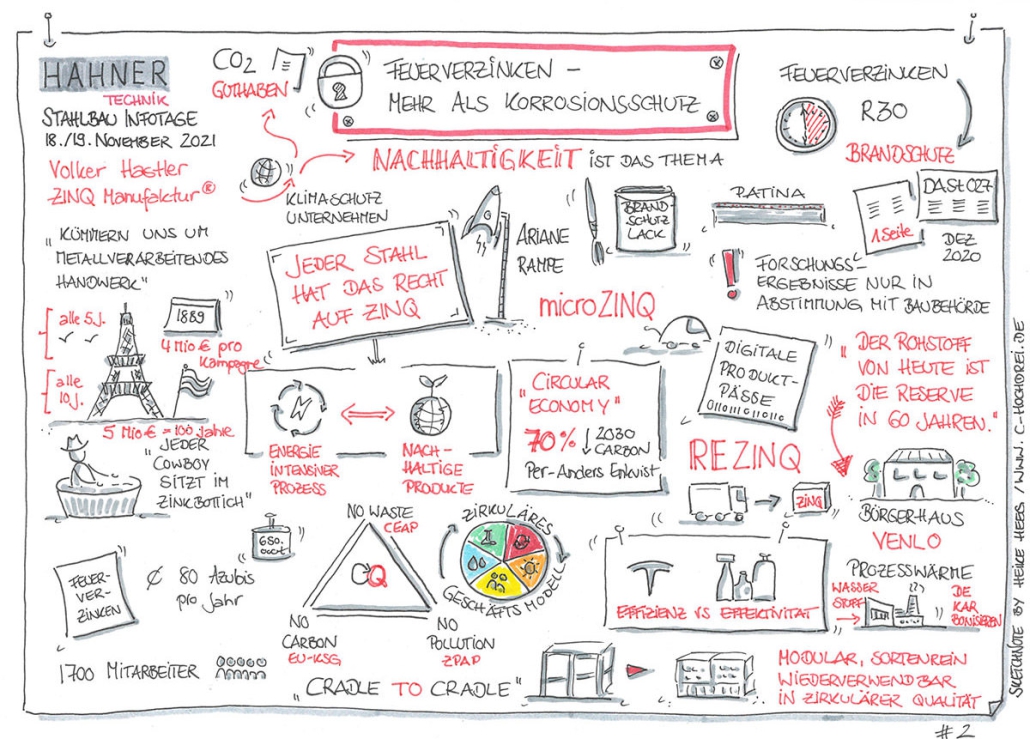 HAHNER
TECHNIK
STAHLBAU INFOTAGE
18./19. NOVEMBER 2021
Volker Hastler
ZINQ Manufaktur®
CO2
GUTHABEN
FEUERVERZINKEN –
MEHR ALS KORROSIONSSCHUTZ
NACHHALTIGKEIT IST DAS THEMA
KLIMASCHUTZ
UNTERNEHMEN
FEUERVERZINKEN
R30
BRANDSCHUTZ
1 Seite
DASt 027
DEZ
2020
"KÜMMERN UNS UM
METALLVERARBEITENDES
HANDWERK"
JEDER STAHL
HAT DAS RECHT
AUF ZINQ
ARIANE
RAMPE
BRAND
SCHUTZ
LACK
PATINA
microZINQ
FORSCHUNGS-
ERGEBNISSE NUR IN
ABSTIMMUNG MIT BAUBEHÖRDE
alle 5 J.
1889
4 Mio € pro
Kampagne
alle
10 J.
5 Mio € = 100 Jahre
"JEDER
COWBOY
SITZT IM
ZINKBOTTICH"
ENERGIE
INTENSINER
PROZESS
NACH-
HALTIGE
PRODUKTE
CIRCULAR
"ECONOMY"
70% ↓ 2030
CARBON
Per-Anders Enkvist
DIGITALE
PRODUKT-
PÄSSE
"DER ROHSTOFF
VON HEUTE IST
DIE RESERVE
IN 60 JAHREN."
REZINQ
ZINQ
BÖRGERHAUS
VENLO
FEUER-
VER-
ZINKEN
¢ 80 Azubis
pro Jahr
1700 MITARBEITER
NO WASTE
CEAP
Q
NO
CARBON
EU-KSG
NO
POLLUTION
ZPAP
ZIRKULÄRES
GESCHÄFTSMODELL
"CRADLE TO CRADLE"
EFFIZIENZ VS EFFEKTIVITÄT
PROZESSWÄRME
WASSER
STOFF
DE
KAR
BONISIEREN
MODULAR, SORTENREIN
WIEDERVERWENDBAR
IN ZIRKULÄRER QUALITÄT
SKETCHNOTE BY HEIKE HEEG / WWW.C-HOCHDREI.DE
#2